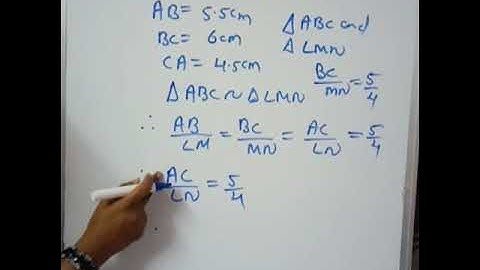 AB = 5.5cm
BC = 6cm
CA = 4.5cm
△ABC and
△LMN
BC/MN = 5/4
△ABC ~ △LMN
∴ AB/LM = BC/MN = AC/LN = 5/4
∴ AC/LN = 5/4